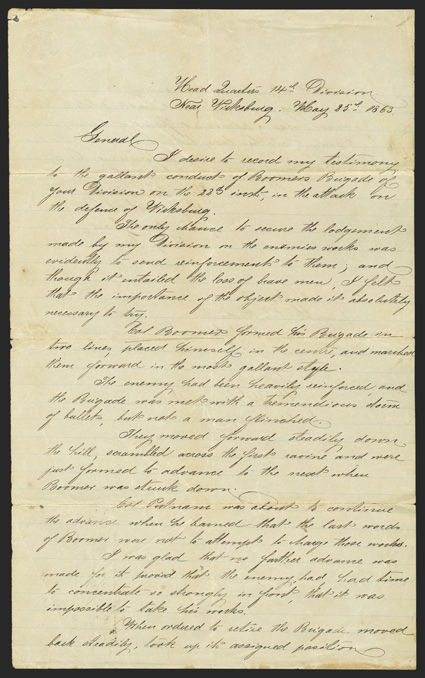 Head Quarters 14th Division
Near Vicksburg. May 25th 1863
General
I desire to record my testimony
to the gallant conduct of Boomers Brigade of
your Division on the 22d inst, in the attack on
the defence of Vicksburg.
The only chance to secure the lodgement
made by my Division on the enemies works was
evidently to send reinforcements to them; and
though it intailed the loss of brave men, I felt
that the importance of the object made it absolutely
necessary to try.
Col Boomer formed his Brigade in
two lines, placed himself in the centre, and marched
them forward in the most gallant style.
The enemy had been heavily reinforced and
the Brigade was met with a tremendious storm
of bullets, but not a man flinched.
They moved forward steadily down
the hill, scrambled across the first ravine and were
just formed to advance to the next when
Boomer was struck down.
Col Putnam was about to continue
the advance when he learned that the last words
of Boomer were not to attempt to charge those works.
I was glad that no farther advance was
made for it proved that the enemy had had time
to concentrate so strongly in front, that it was
impossible to take his works.
When ordered to retire the Brigade moved
back steadily, took up its assigned position